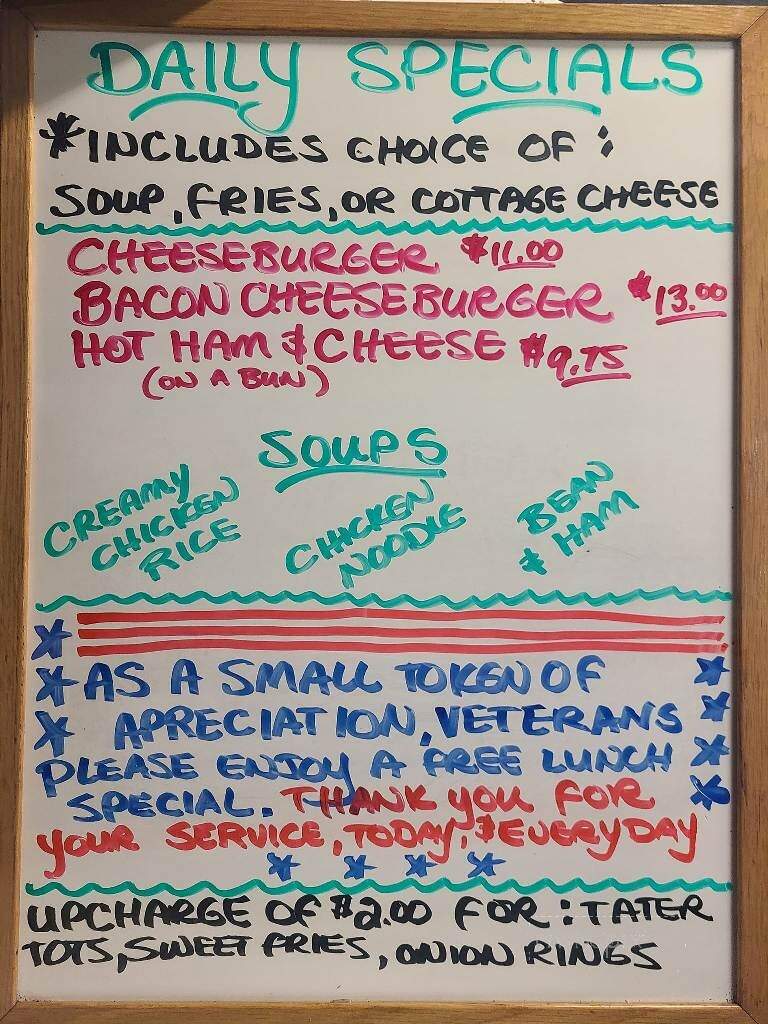 DAILY SPECIALS
*INCLUDES CHOICE OF:
SOUP, FRIES, OR COTTAGE CHEESE
CHEESEBURGER $11.00
BACON CHEESEBURGER $13.00
HOT HAM & CHEESE $9.75
(ON A BUN)
SOUPS
CREAMY
CHICKEN
RICE
CHICKEN
NOODLE
BEAN
& HAM
AS A SMALL TOKEN OF
APRECIATION, VETERANS
PLEASE ENJOY A FREE LUNCH
SPECIAL. THANK YOU FOR
YOUR SERVICE, TODAY, & EVERYDAY
UPCHARGE OF $2.00 FOR: TATER
TOTS, SWEET FRIES, ONION RINGS